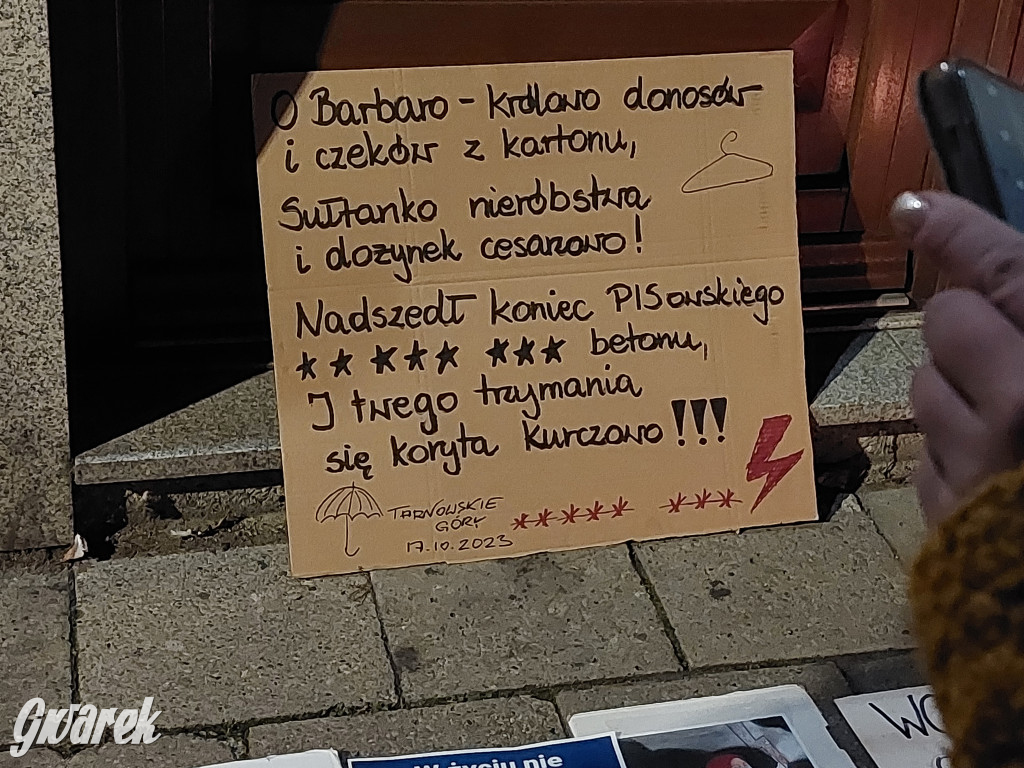 O Barbaro - królowo donosów
i czeków z kartonu,
Sułtanko nieróbstwa
i dożynek cesarzowo!
Nadszedł koniec PISowskiego
★★ ★★★ ★★★ betonu,
I twego trzymania
się koryta kurczowo!!!
TARNOWSKIE
GÓRY
17.10.2023
***** ***
Gwarek
W życiu nie